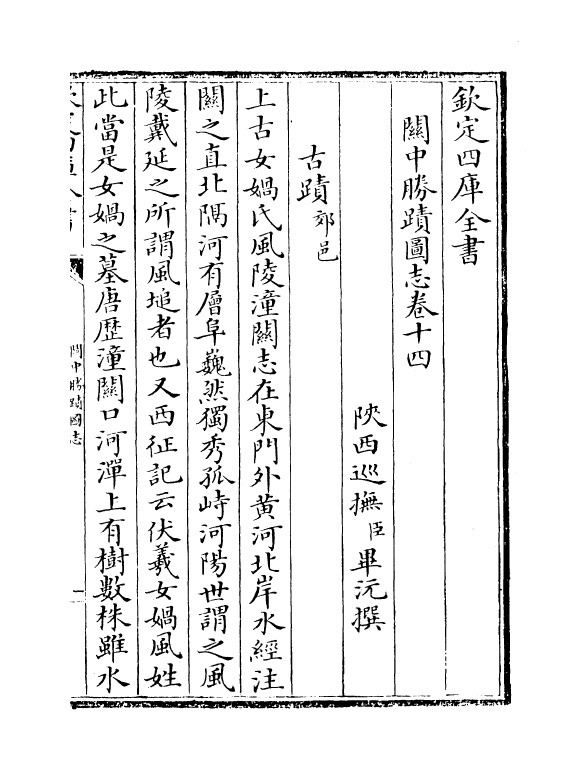 欽定四庫全書
關中勝蹟圖志卷十四
陜西巡撫臣畢沅撰
古蹟郊邑
上古女媧氏風陵潼關志在東門外黄河北岸水經注
關之直北隔河有層阜巍然獨秀孤峙河陽世謂之風
陵戴延之所謂風塠者也又西征記云伏羲女媧風姓
此當是女媧之墓唐歴潼關口河潬上有樹數株雖水
關中勝蹟圖志
一